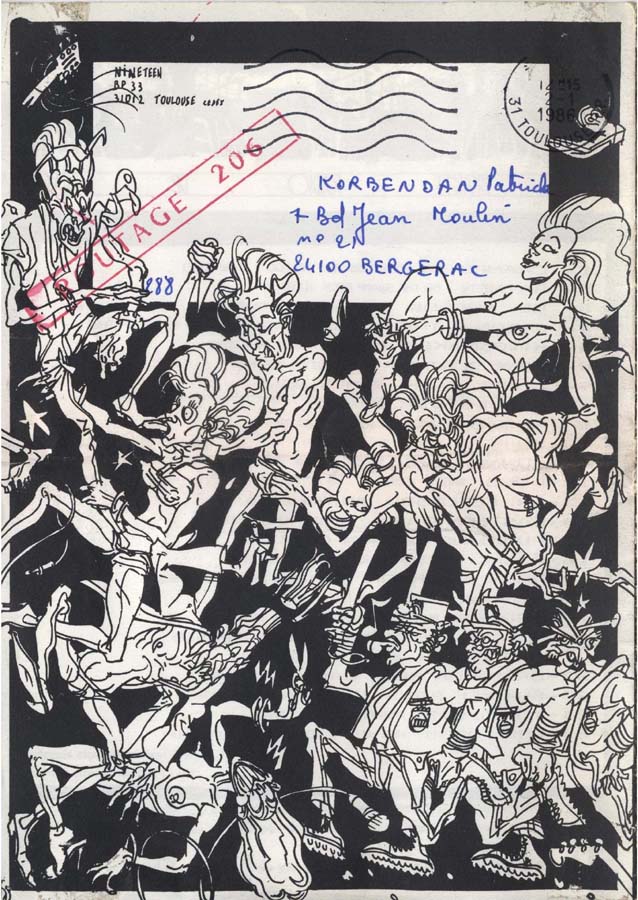 NINETEEN
BP 33
31012 TOULOUSE CEDEX
12H15
2-1
1986
31 TOULOUSE
ROUTAGE 206
KORBENDAN Patrick
7 Bd Jean Moulin
n° 2N
24100 BERGERAC
288